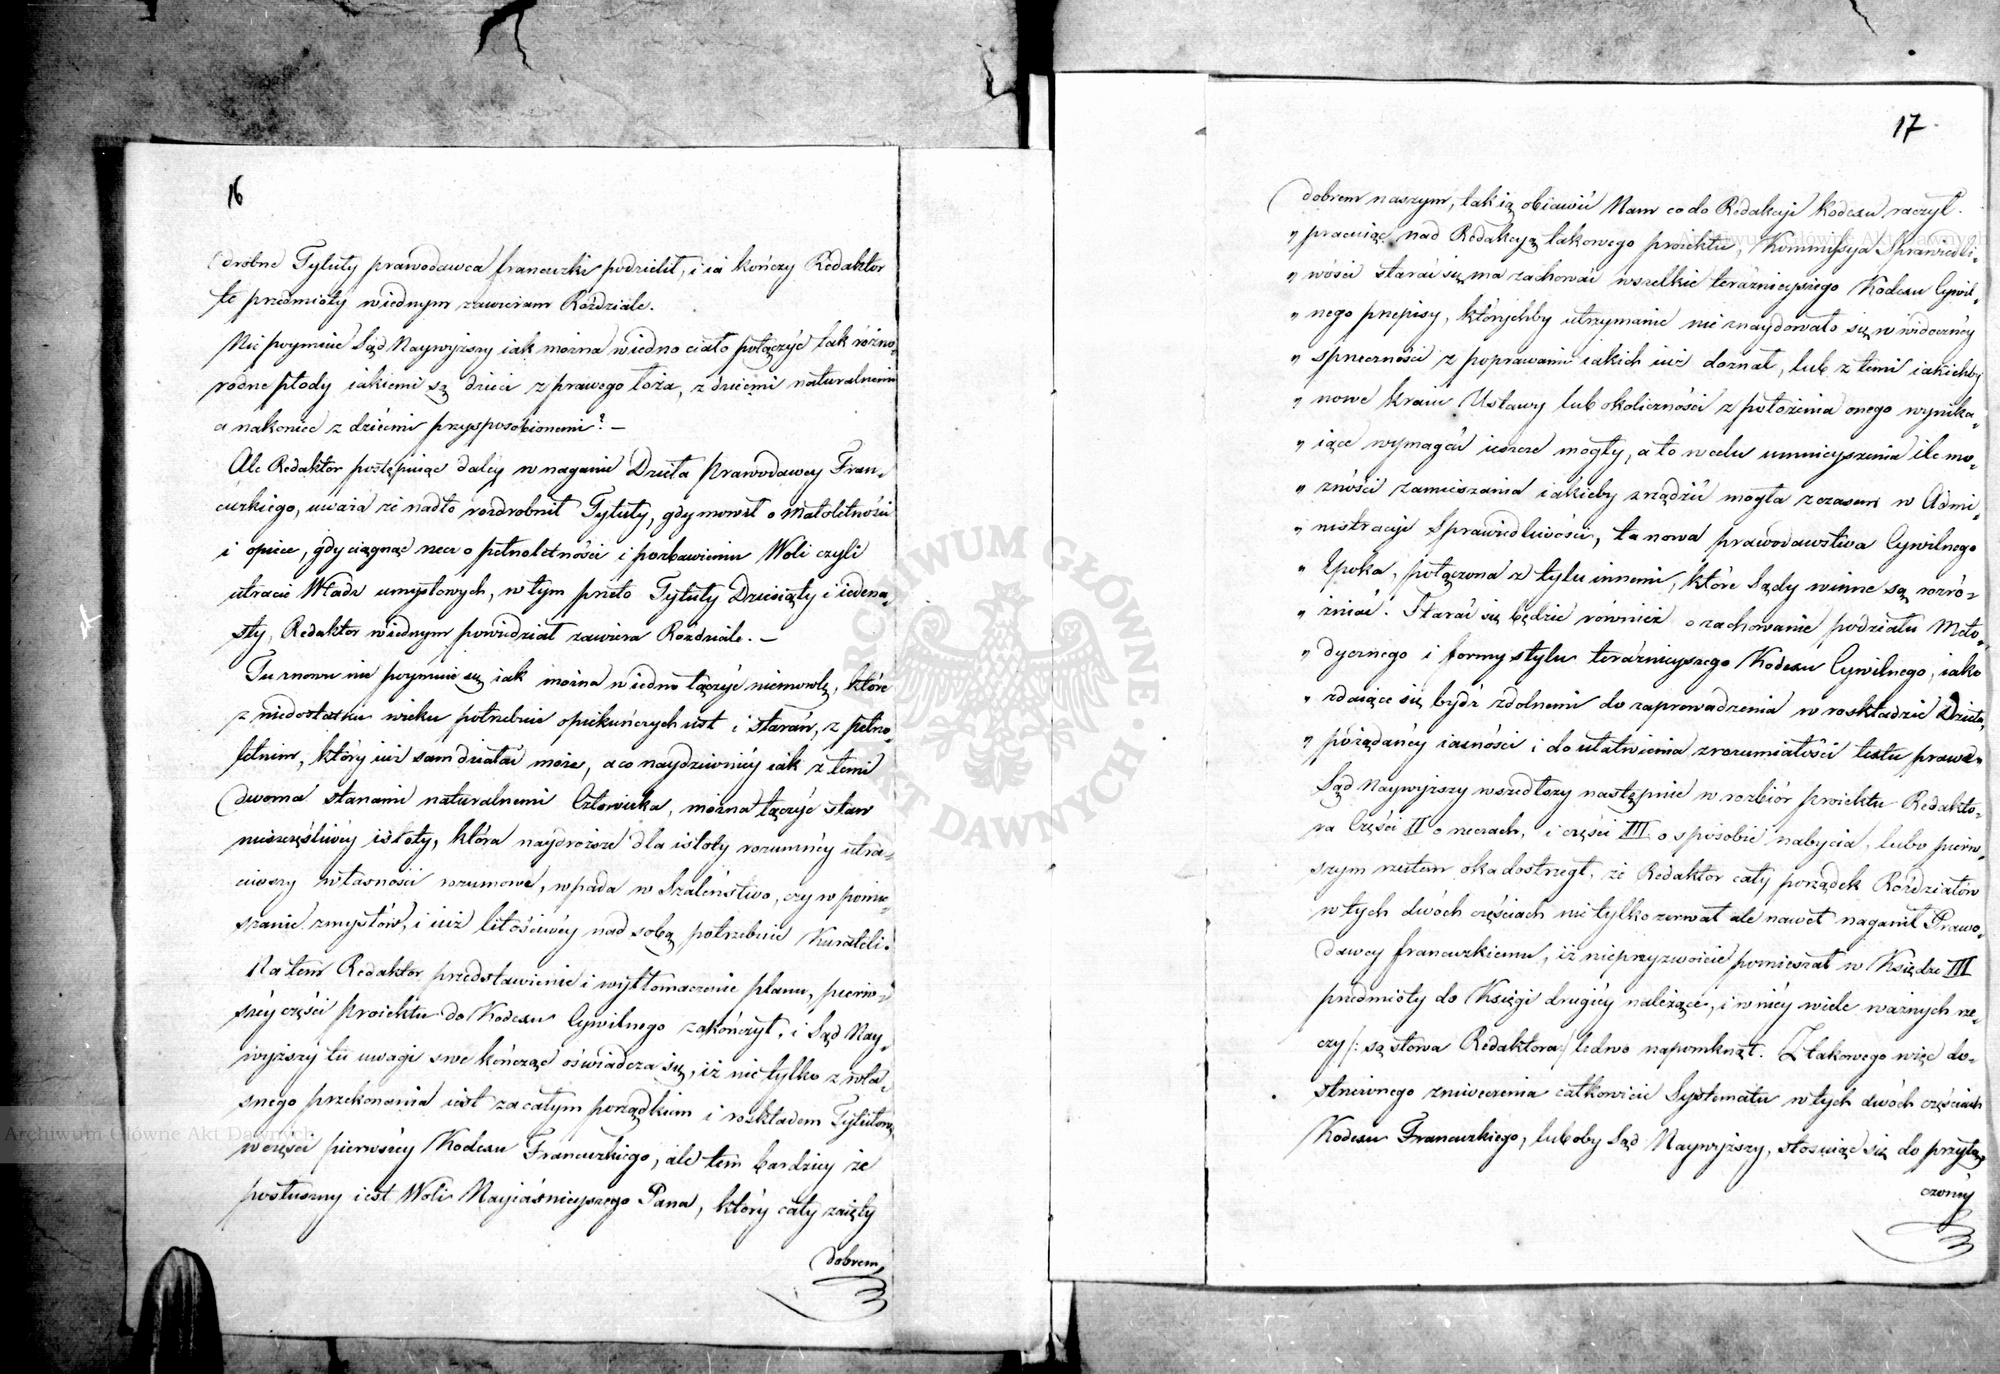 16
drobne Tytuły prawodawca francuzki podzielił, i ia kończy Redaktor
te przedmioty wiednym zawieram Rozdziale.
Nie poymuie Sąd Naywyższy iak można wiedno ciało połączyć tak różno-
rodne płody iakiemi są dzieci z prawego łoża, z dziećmi naturalnemi
a nakoniec z dziećmi przysposobionemi? –
Ale Redaktor postępuiąc daley w naganie Dzieła Prawodawcy Fran-
cuzkiego, uważa że nadto rozdrobnił Tytuły, gdy mówił o Małoletności
i opiece, gdy ciągnąc rzecz o pełnoletności i pozbawieniu Woli czyli
utracie Władz umysłowych, w tym przeto Tytuły Dziesiąty i iedena-
sty, Redaktor wiednym powiedział zawiera Rozdziale. –
Tu znowu nie poymuie się iak można wiedno łączyć niemowlę, które
z niedostatku wieku potrzebuie opiekuńczych ust i starań, z pełno-
letnim, który iuż sam działać może, a co naydziwniéy iak z temi
dwoma stanami naturalnemi Człowieka, można łączyć stan
nieszczęśliwéy istoty, która naydroższe dla istoty rozumnéy utra-
ciwszy własności rozumowe, wpada w Szaleństwo, czy w pomie-
szanie zmysłów, i iuż litościwéy nad sobą potrzebuie Kurateli.
Na tem Redaktor przedstawienie i wytłomaczenie planu, pierw-
széy części Proiektu do Kodexu Cywilnego zakończył, i Sąd Nay-
wyższy tu uwagi swe kończąc oświadcza się, iż nie tylko z wła-
snego przekonania iest za całym porządkiem i roskładem Tytułów
w części pierwszéy Kodexu Francuzkiego, ale tem bardziey że
posłuszny iest Woli Nayiaśnieyszego Pana, który cały zaięty
dobrem,
17
dobrem naszym, tak ią obiawić Nam co do Redakcyi Kodexu raczył.
„ pracuiąc nad Redakcyą takowego proiektu, Kommissya Sprawiedli-
„ wości starać się ma zachować wszelkie teraźnieyszego Kodexu Cywil-
„ nego przepisy, którychby utrzymanie nie znaydowało się w widocznéy
„ sprzeczności z poprawami iakich iuż doznał, lub z temi iakichby
„ nowe kraiu Ustawy lub okoliczności z położenia onego wynika-
„ iące wymagać ieszcze mogły, a to w celu umnieyszenia ile mo-
„ żności zamieszania iakieby zrządzić mogła z czasem w Admi-
„ nistracyi Sprawiedliwości, ta nowa prawodawstwa Cywilnego
„ Epoka, połączona z tylu innemi, które Sądy winne są rozró-
„ żniać. Starać się będzie również o zachowanie podziału Meto-
„ dycznego i formy stylu teraźnieyszego Kodexu Cywilnego, iako
„ zdaiące się bydź zdolnemi do zaprowadzenia w roskładzie Dzieła,
„ pożądanéy iasności i do ułatwienia zrozumiałości textu prawa„
Sąd Naywyższy wszedłszy następnie w rozbiór proiektu Redakto-
ra Części II o rzeczach, i części III o sposobie nabycia, lubo pierw-
szym rzutem oka dostrzegł, że Redaktor cały porządek Rozdziałów
w tych dwóch częściach nie tylko zerwał ale nawet naganił Prawo-
dawcy francuzkiemu, iż nieprzyzwoicie pomieszał w Księdze III
przedmioty do Księgi drugiéy należące, i w niéy wiele ważnych rze-
czy /: są słowa Redaktora :/ ledwo napomknął. Z takowego więc do-
strzeżonego zniweczenia całkowicie Systematu w tych dwóch częściach
Kodexu Francuzkiego, luboby Sąd Naywyższy, stosuiąc się do przyłą-
czonéy
ARCHIWUM GŁÓWNE AKT DAWNYCH
Archiwum Główne Akt Dawnych